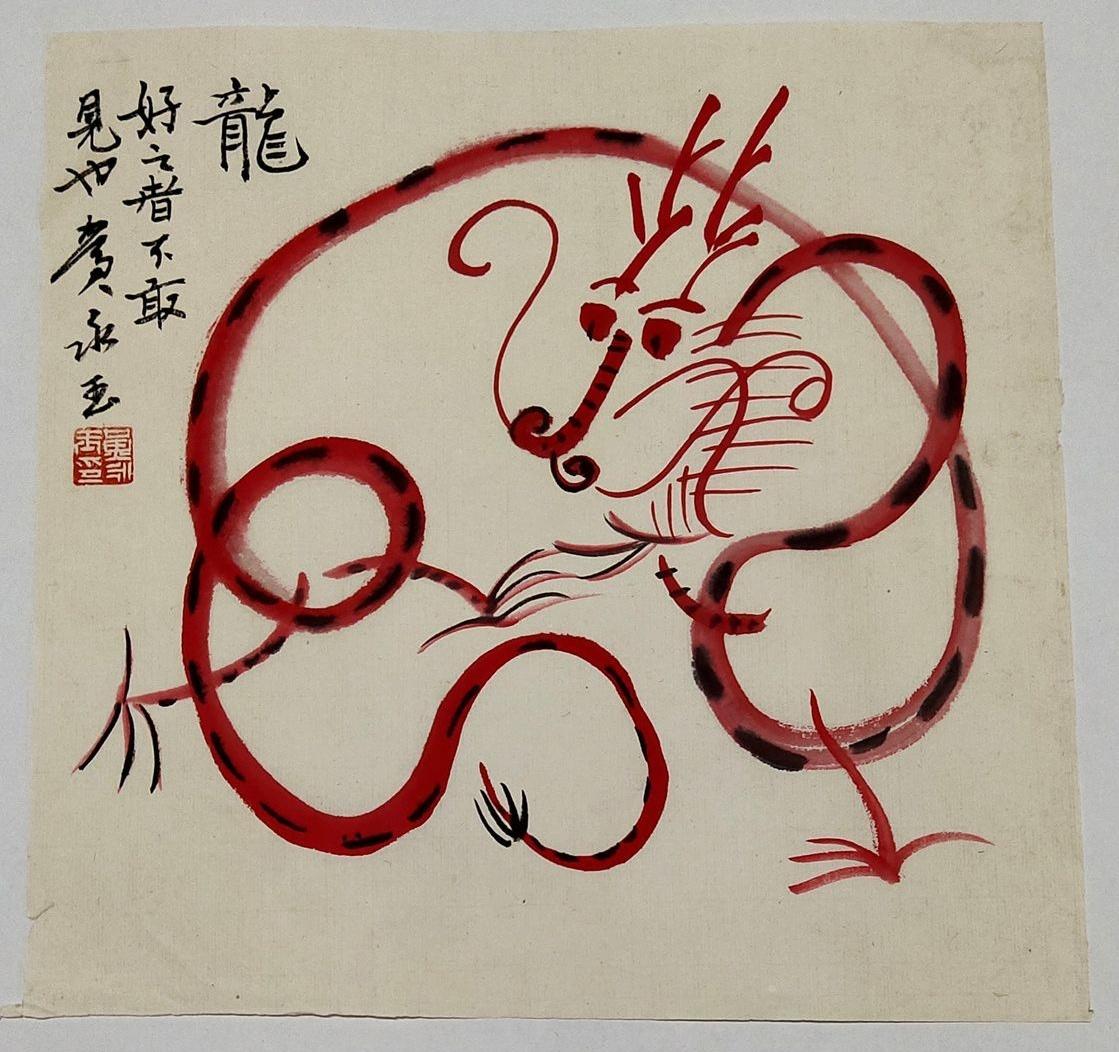 龍
好之者不敢
見也黃永玉
黃永
玉印